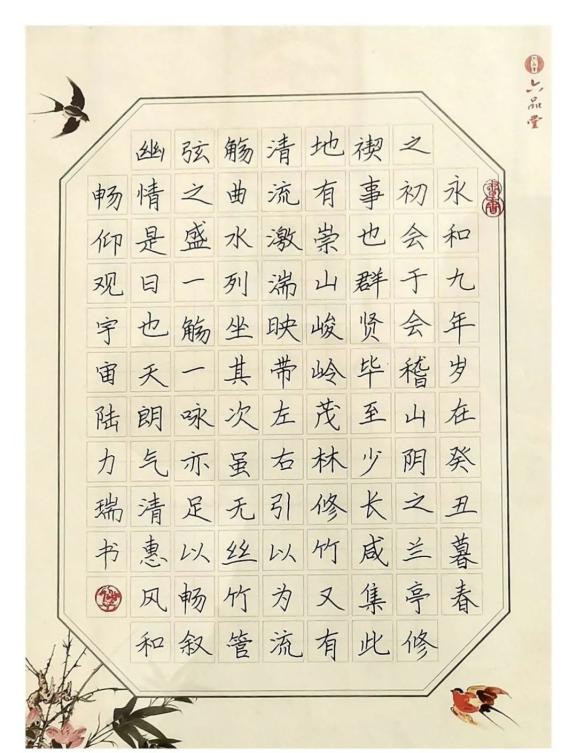 永和九年岁在癸丑暮春
之初会于会稽山阴之兰亭修
禊事也群贤毕至少长咸集此
地有崇山峻岭茂林修竹又有
清流激湍映带左右引以为流
觞曲水列坐其次虽无丝竹管
弦之盛一觞一咏亦足以畅叙
幽情是日也天朗气清惠风和
畅仰观宇宙陆力瑞书
六品堂